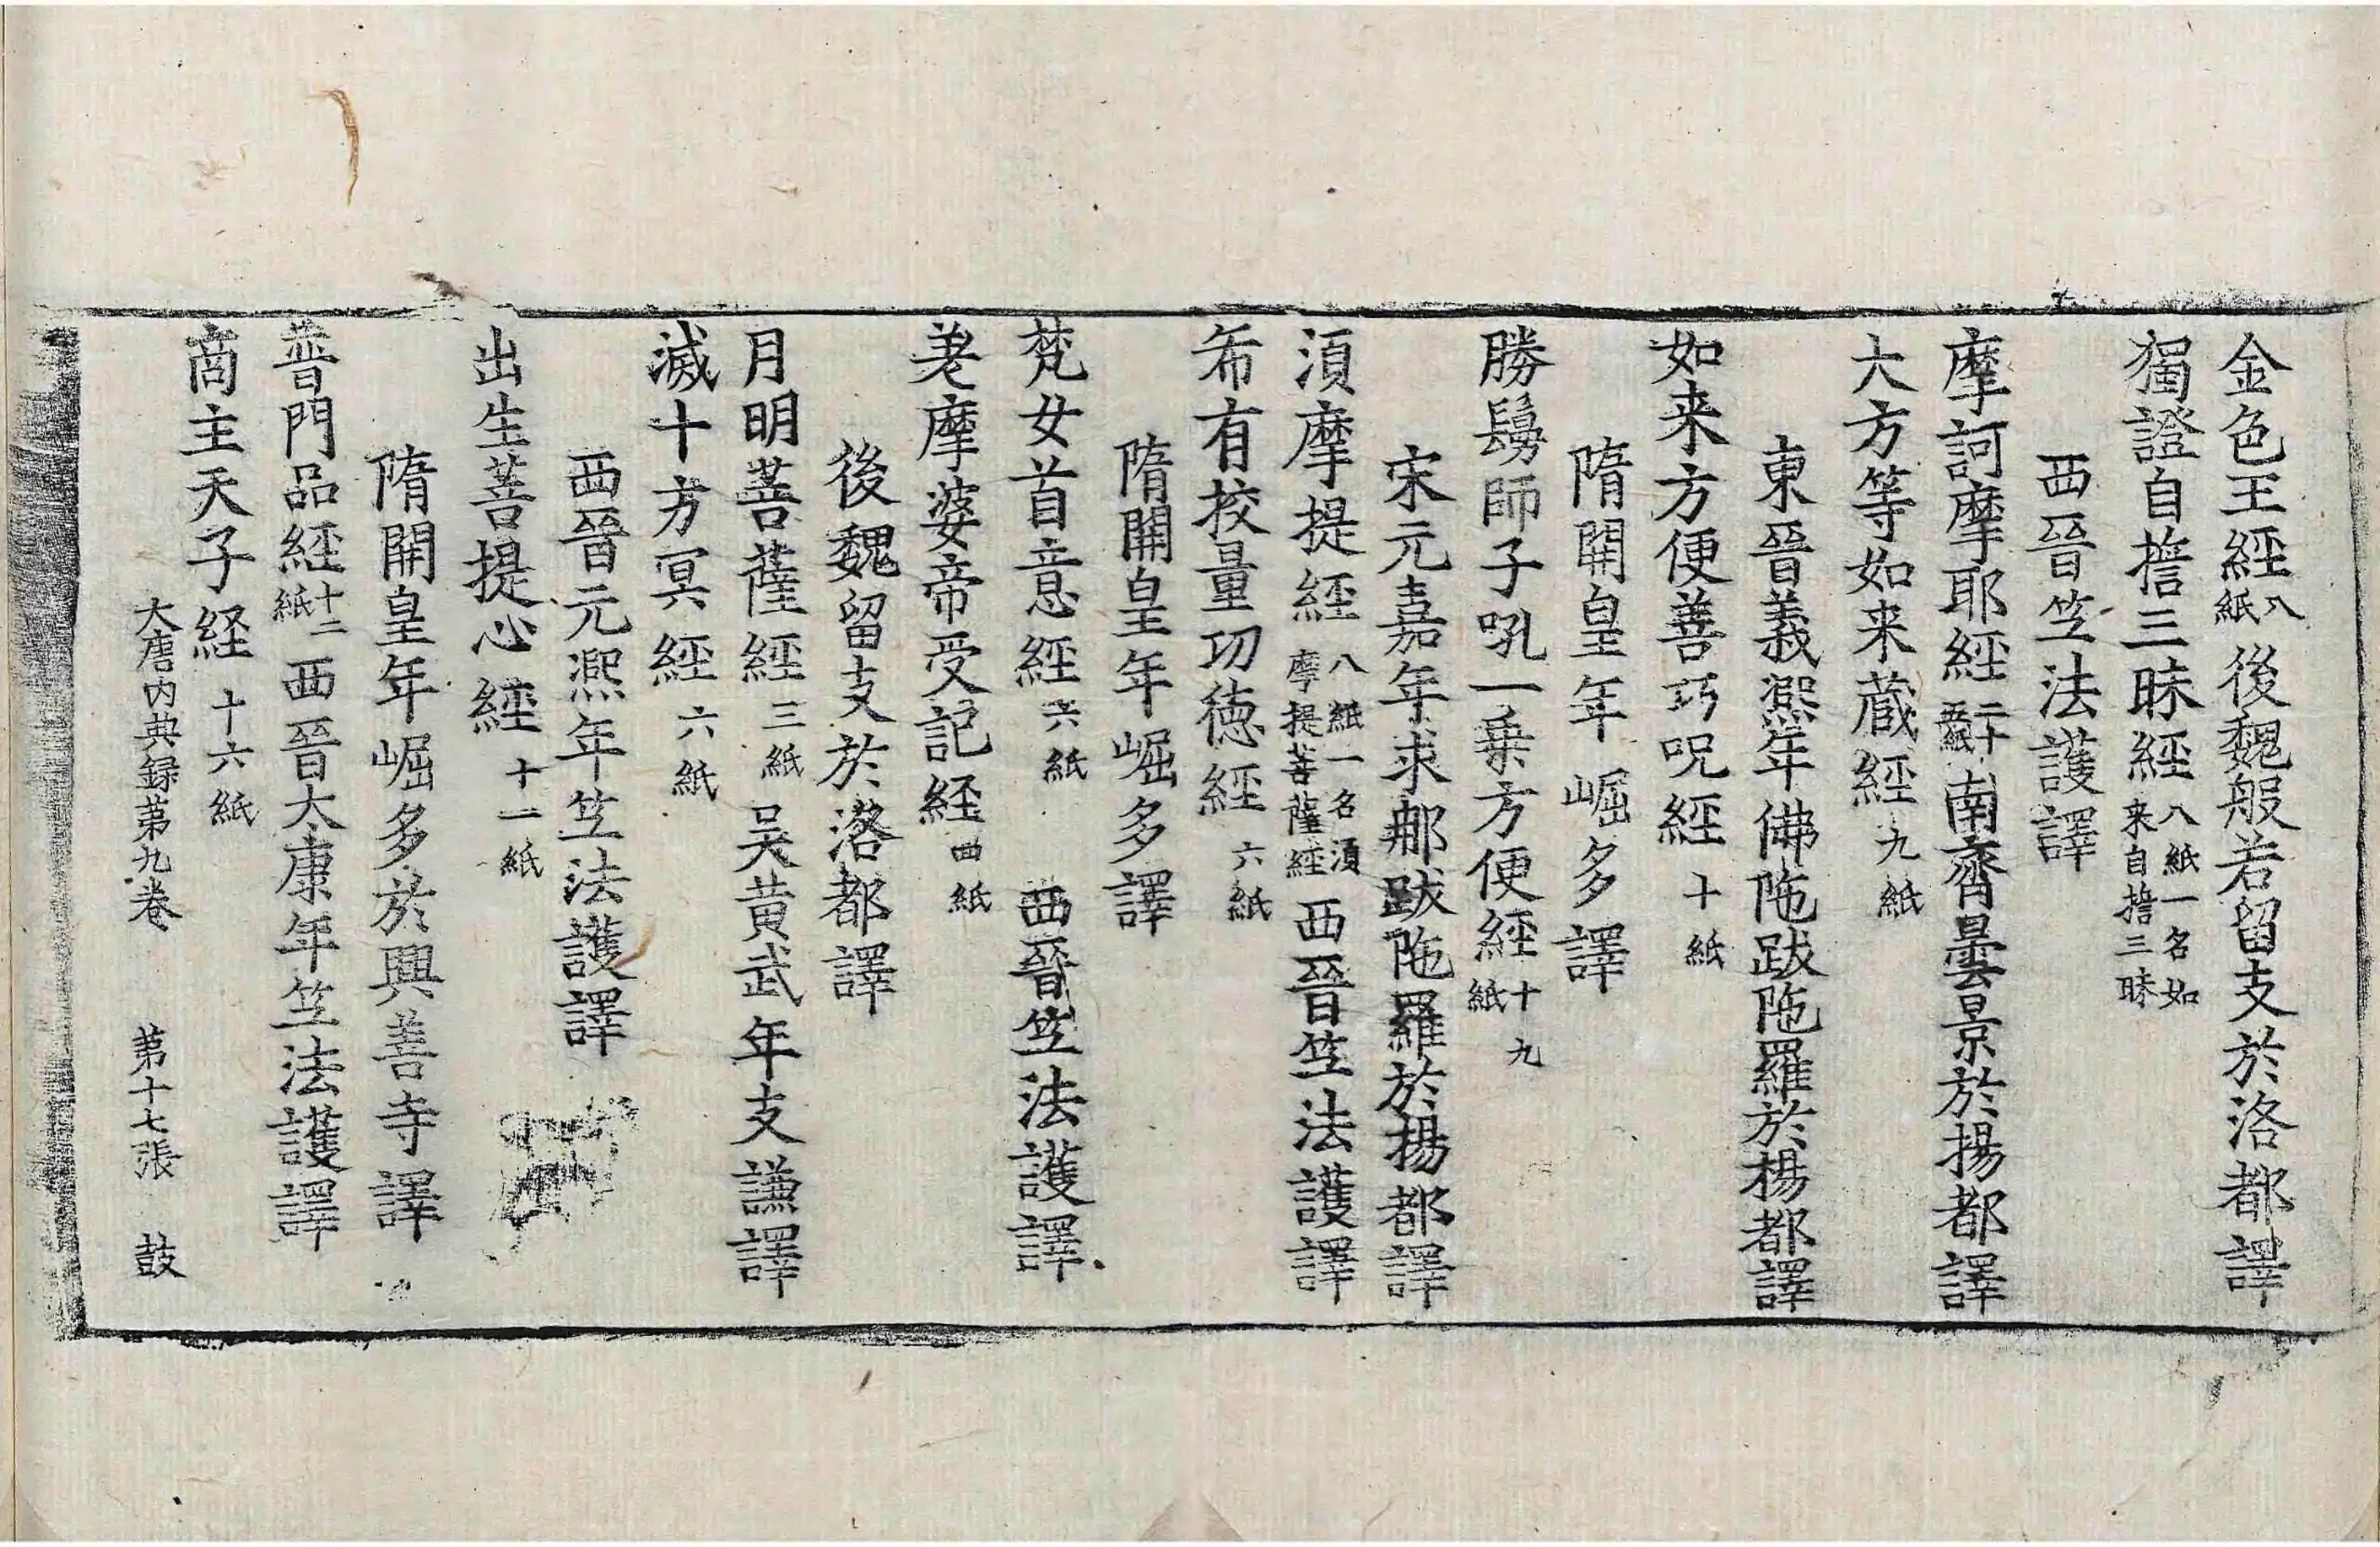 金色王經八紙後魏般若留支於洛都譯
獨證自擔三昧經八紙一名如来自擔三昧
西晉笁法護譯
摩訶摩耶經二十五紙南齊曇景於揚都譯
大方等如来蔵經九紙
東晉義熈年佛陁跋陁羅於楊都譯
如来方便善巧呪經十紙
隋開皇年崛多譯
勝鬘師子吼一乗方便經十九紙
宋元嘉年求那跋陁羅於楊都譯
湏摩提經八紙一名湏摩提菩薩經西晉笁法護譯
希有挍量功徳經六紙
隋開皇年崛多譯
梵女首意經六紙西晉笁法護譯
差摩婆帝受記経四紙
後魏留支於洛都譯
月明菩薩經三紙吴黄武年支謙譯
滅十方冥經六紙
西晉元熈年笁法護譯
出生菩提心經十一紙
隋開皇年崛多於興善寺譯
普門品經十二紙西晉大康年笁法護譯
商主天子経十六紙
大唐内典録苐九卷 苐十七張 鼓